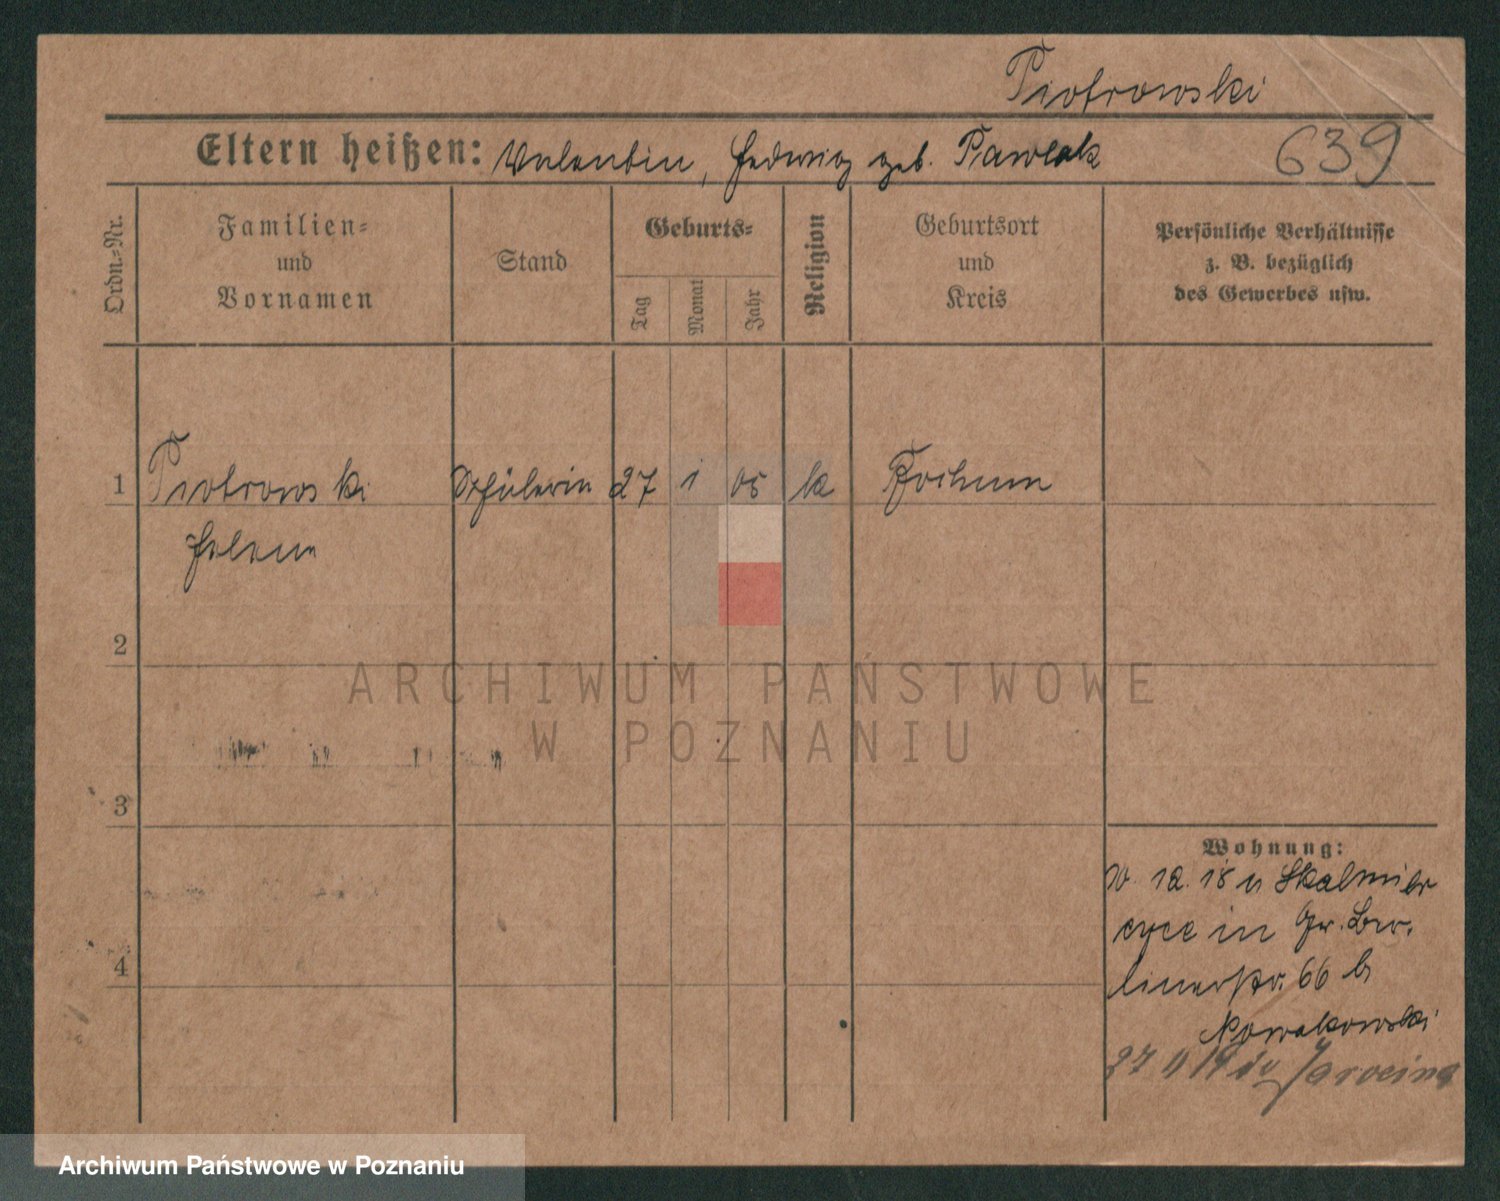 Piotrowski
Eltern heißen: Valentin, Hedwig geb. Pawlak
639
Ordn.-Nr.
Familien-
und
Vornamen
Stand
Geburts-
Tag
Monat
Jahr
Religion
Geburtsort
und
Kreis
Persönliche Verhältnisse
z. B. bezüglich
des Gewerbes usw.
1 Piotrowski Schülerin 27 1 05 k Bochum
Helene
2
ARCHIWUM PAŃSTWOWE
W POZNANIU
3
Wohnung:
12. 18 n Skalmier
cyce in Gr. Ber.
linerstr. 66 b
Nowakowski
4
27 11 19 Jarocina
Archiwum Państwowe w Poznaniu